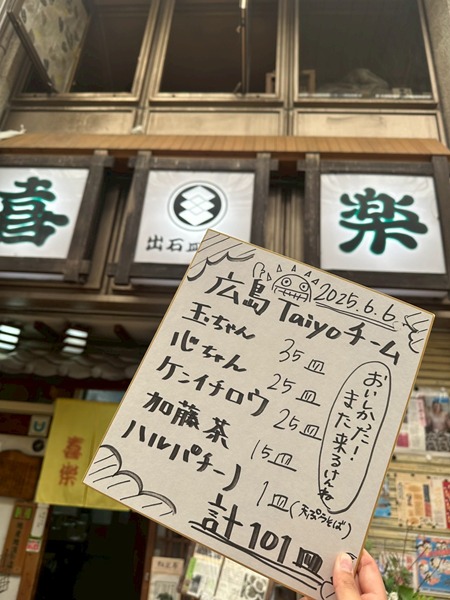 喜
出石皿
楽
2025.6.6.
広島Taiyoチーム
玉ちゃん 35皿
心ちゃん 25皿
ケンイチロウ 25皿
加藤茶 15皿
ハルパチーノ 1皿(天ぷらそば)
計101皿
おいしかった!
また来るけんね
喜楽